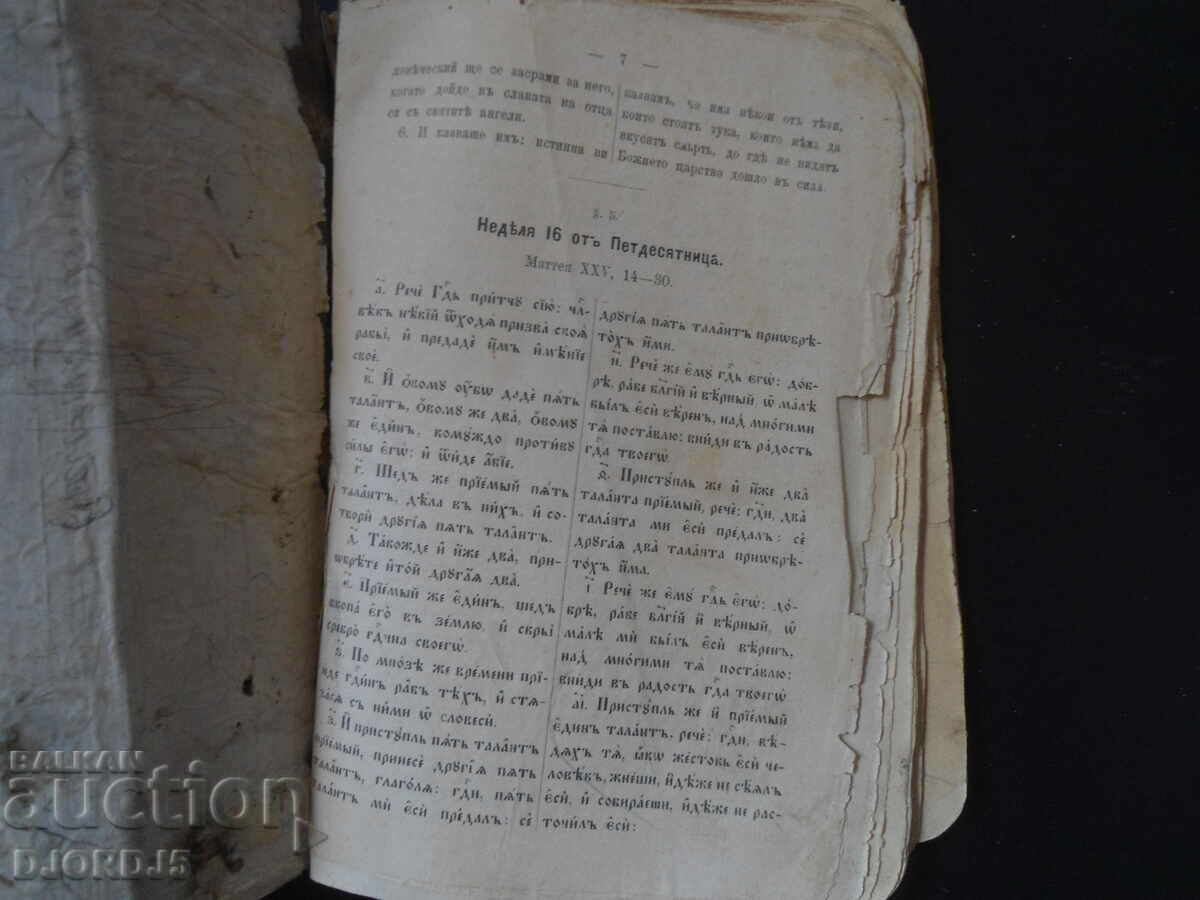 — 7 —
ловѣческий ще се засрами за него,
когато дойде въ славата на отца
си съ святитѣ ангели.
6. И казваше имъ; истинна ви
казвамъ, че има нѣкои от тѣзи,
които стоятъ тука, които нѣма да
вкусятъ смърть, до гдѣ не видятъ
Божието царство дошло въ сила.
Недѣля 16 отъ Петдесятница.
Маттея XXV, 14—30.
а҃. Рече́ Гдⷭ҇ь при́тчꙋ сїю̀: чл҃-
вѣ́къ нѣ́кїй ѿходѧ̀ призва̀ своѧ̑
рабы̀, и҆ предадѐ и҆̀мъ и҆мѣ́нїе
своѐ.
в҃. И҆ ѻ҆́вомꙋ ᲂу҆́бѡ дадѐ пѧ́ть
тала̑нтъ, ѻ҆́вомꙋ же два̀, ѻ҆́вомꙋ
же є҆ди́нъ, комꙋ́ждо проти́вꙋ
си́лы є҆гѡ̀: и҆ ѿи́де а҆́бїе.
г҃. Ше́дъ же прїе́мый пѧ́ть
тала̑нтъ, дѣ́ла въ ни́хъ, и҆ со-
творѝ дрꙋгі̑ѧ пѧ́ть тала̑нтъ.
д҃. Та́кожде и҆ и҆́же два̀, прї-
ѡбрѣ́те и҆ то́й дрꙋга̑ѧ два̀.
є҃. Прїе́мый же є҆ди́нъ, ше́дъ
вкопа̀ є҆го̀ въ зе́млю, и҆ скры̀
сребро̀ гдⷭ҇и́на своегѡ̀.
ѕ҃. По мно́зѣ же вре́мени прїи́-
де гдⷭ҇и́нъ ра̑бъ тѣ́хъ, и҆ стѧ-
за́сѧ съ ни́ми ѡ҆ словесѝ.
з҃. И҆ пристꙋ́пль пѧ́ть тала̑нтъ
прїе́мый, принесѐ дрꙋгі̑ѧ пѧ́ть
тала̑нтъ, глаго́лѧ: гдⷭ҇и, пѧ́ть
тала̑нтъ мѝ є҆сѝ пре́далъ: сѐ
дрꙋгі̑ѧ пѧ́ть тала̑нтъ приѡбрѣ-
то́хъ и҆́ми.
и҃. Рече́ же є҆мꙋ̀ гдⷭ҇ь є҆гѡ̀: до́б-
рѣ, ра́бе бл҃гі́й и҆ вѣ́рный, ѡ҆ ма́лѣ
бы́лъ є҆сѝ вѣ́ренъ, над мно́гими
тѧ̀ поста́влю: вни́ди въ ра́дость
гдⷭ҇а твоегѡ̀.
ѳ҃. Пристꙋ́пль же и҆ и҆́же два̀
тала̑нта прїе́мый, речѐ: гдⷭ҇и, два̀
тала̑нта ми є҆сѝ пре́далъ: сѐ
дрꙋга̑ѧ два̀ тала̑нта приѡбрѣ-
то́хъ и҆́ма.
і҃. Рече́ же є҆мꙋ̀ гдⷭ҇ь є҆гѡ̀: до́-
брѣ, ра́бе бл҃гі́й и҆ вѣ́рный, ѡ҆
ма́лѣ мѝ бы́лъ є҆сѝ вѣ́ренъ,
над мно́гими тѧ̀ поста́влю:
вни́ди въ радость гдⷭ҇а твоегѡ̀
а҃і. Пристꙋ́пль же и҆ прїе́мый
є҆ди́нъ тала́нтъ, речѐ: гдⷭ҇и, вѣ́-
дѧхъ тѧ̀, ꙗ҆́кѡ же́стокъ є҆сѝ че-
ловѣ́къ, жне́ши, и҆дѣ́же не сѣ́ѧлъ
є҆сѝ, и҆ собира́еши, и҆дѣ́же не рас-
точи́лъ є҆сѝ:
BALKAN
auction
DJORDJ5